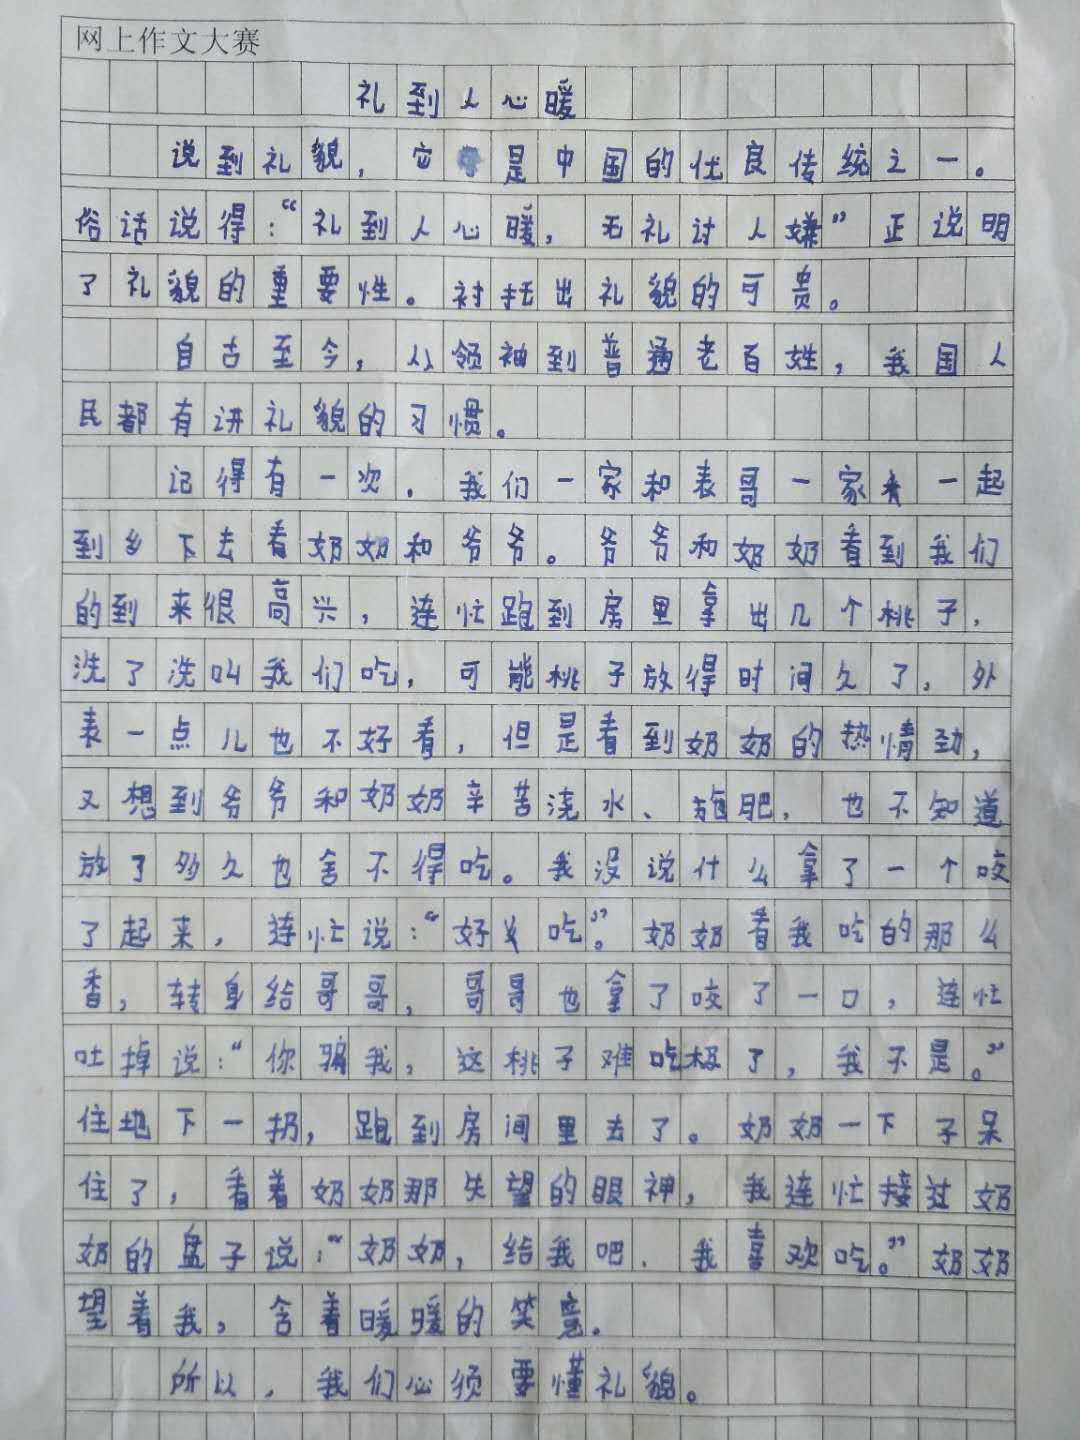 网上作文大赛
礼到人心暖
说到礼貌，它是中国的优良传统之一。
俗话说得：“礼到人心暖，无礼讨人嫌”正说明
了礼貌的重要性。衬托出礼貌的可贵。
自古至今，从领袖到普通老百姓，我国人
民都有讲礼貌的习惯。
记得有一次．我们一家和表哥一家一起
到乡下去看奶奶和爷爷。爷爷和奶奶看到我们
的到来很高兴，连忙跑到房里拿出几个桃子，
洗了洗叫我们吃，可能桃子放得时间久了，外
表一点儿也不好看，但是看到奶奶的热情劲，
又想到爷爷和奶奶辛苦浇水、施肥，也不知道
放了多久也舍不得吃。我没说什么拿了一个咬
了起来，连忙说：“好吃”。奶奶看我吃的那么
香，转身给哥哥，哥哥也拿了咬了一口，连忙
吐掉说：“你骗我，这桃子难吃极了，我不是。”
住地下一扔，跑到房间里去了。奶奶一下子呆
住了，看着奶奶那失望的眼神，我连忙接过奶
奶的盘子说：“奶奶，给我吧．我喜欢吃。”奶奶
望着我，含着暖暖的笑意。
所以，我们必须要懂礼貌。